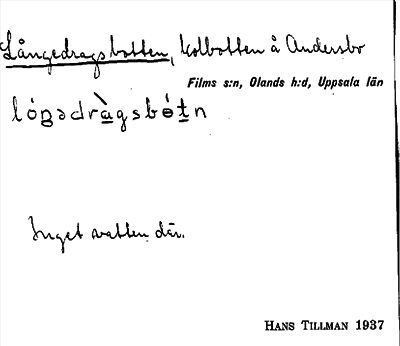 Långedragsbotten, kolbotten å Andersbo
Films s:n, Olands h:d, Uppsala län
lóŋədràgsbótn
Inget vatten där.
HANS TILLMAN 1937